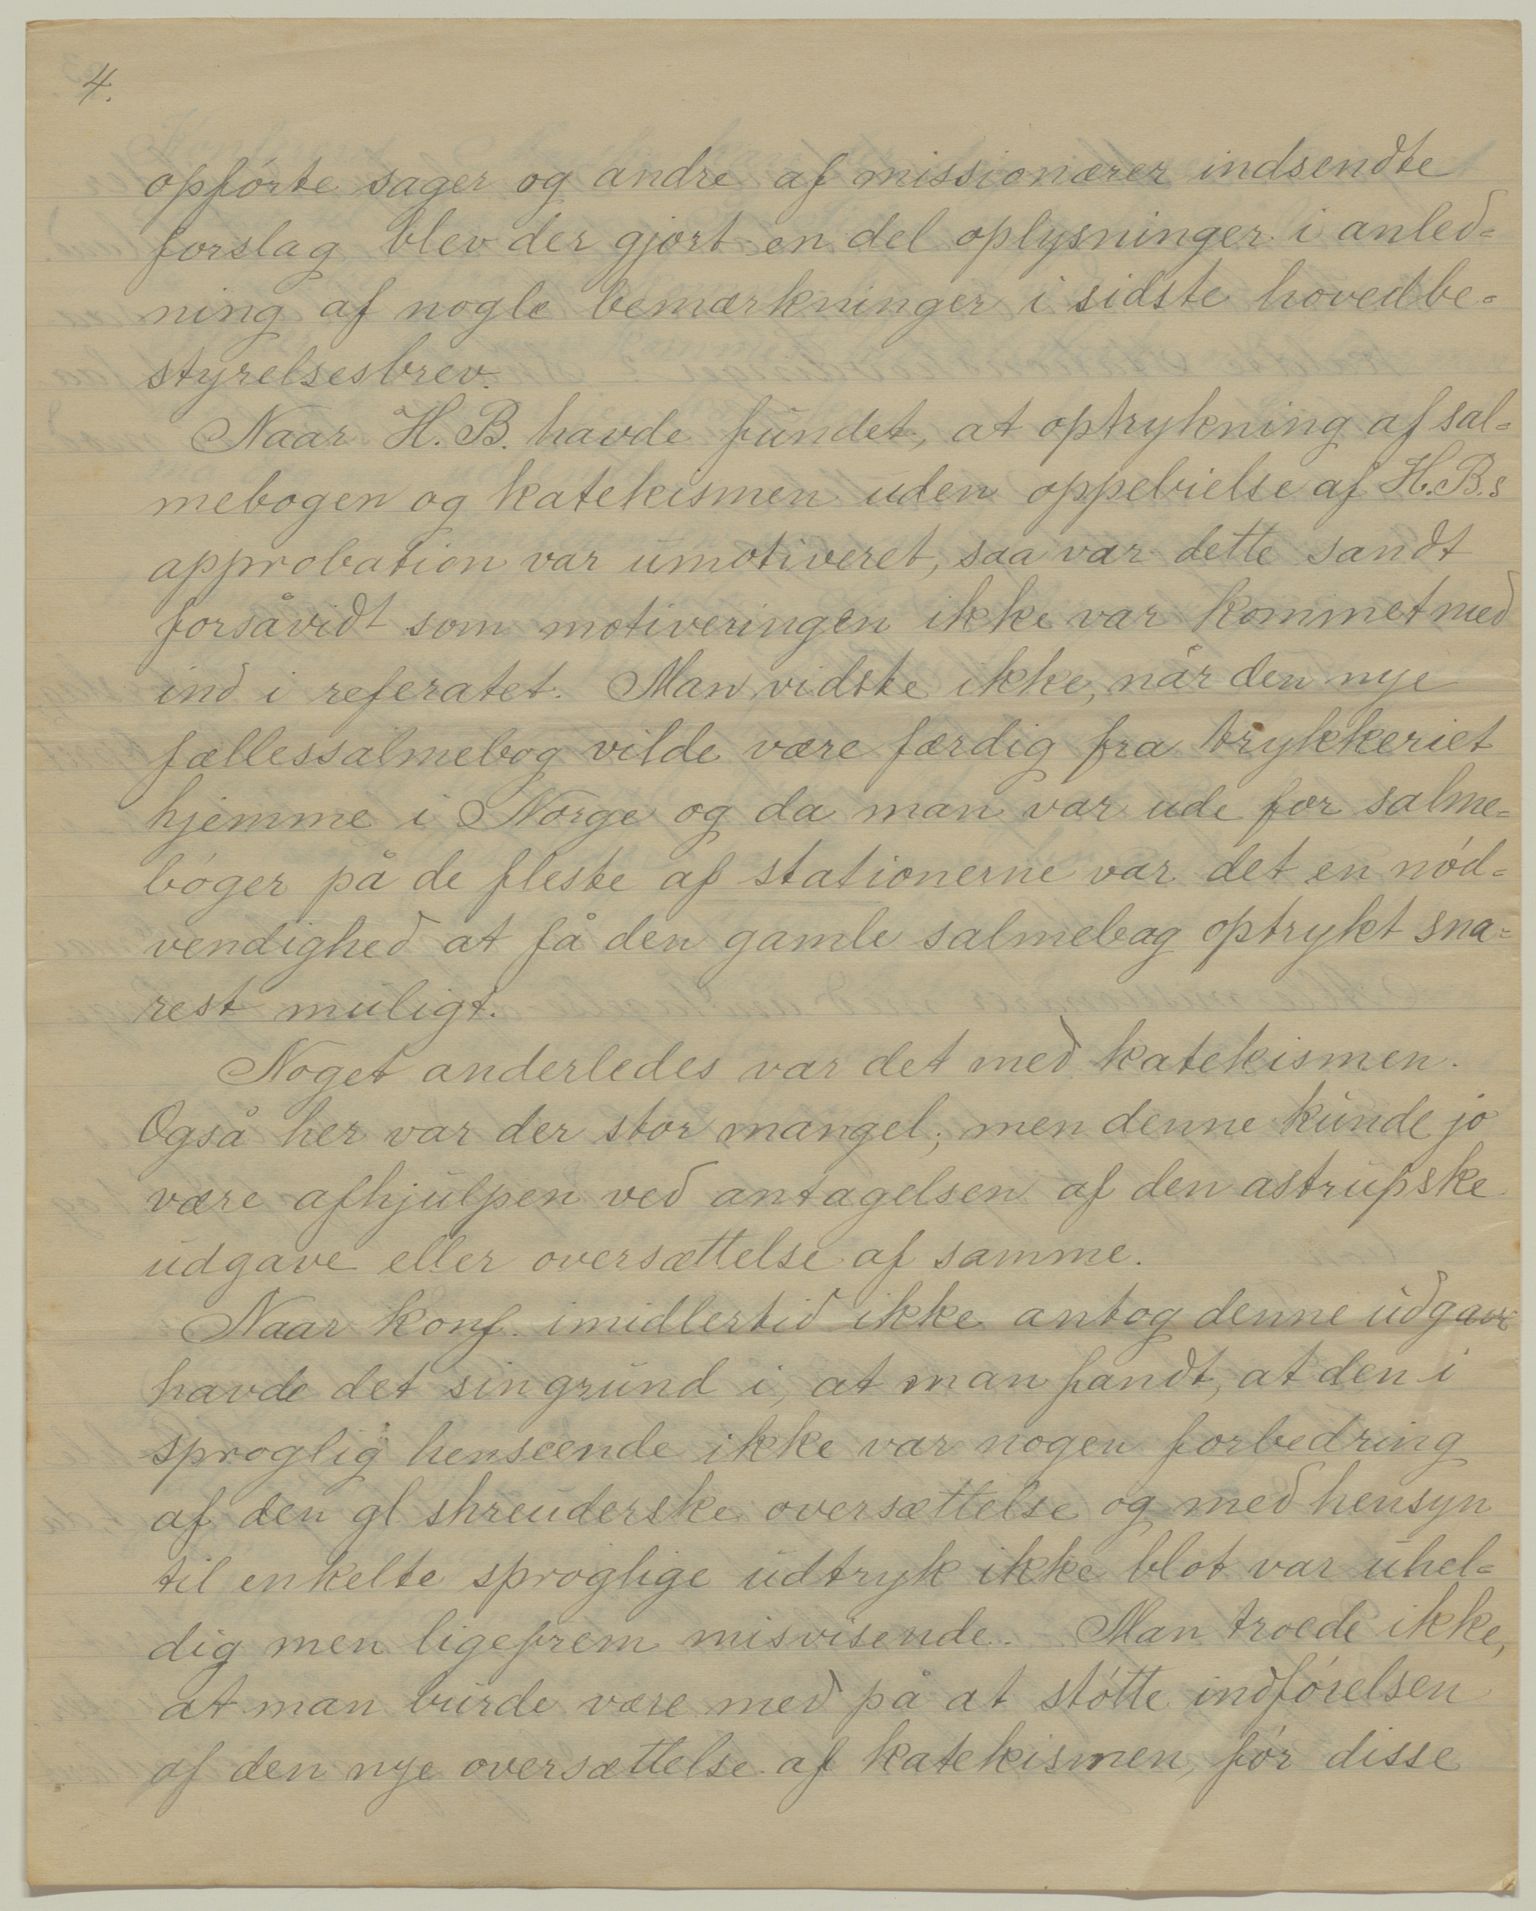 4.
opførte sager og andre af missionærer indsendte
forslag blev der gjort en del oplysninger i anled=
ning af nogle bemærkninger i sidste hovedbe=
styrelsesbrev.
Naar H.B. havde fundet, at optrykning af sal=
mebogen og katekismen uden oppebielse af H.B.s
approbation var umotiveret, saa var dette sandt
forsåvidt som motiveringen ikke var kommet med
ind i referatet. Man vidste ikke, når den nye
fællessalmebog vilde være færdig fra trykkeriet
hjemme i Norge og da man var ude for salme=
bøger på de fleste af stationerne var det en nød=
vendighed at få den gamle salmebog optrykt sna=
rest muligt.
Noget anderledes var det med katekismen.
Også her var der stor mangel; men denne kunde jo
være afhjulpen ved antagelsen af den astrupske
udgave eller oversættelse af samme.
Naar konf. imidlertid ikke antog denne udgave
havde det sin grund i, at man fandt, at den i
sproglig henseende ikke var nogen forbedring
af den gl skreuderske oversættelse og med hensyn
til enkelte sproglige udtryk ikke blot var uhel=
dig men ligefrem misvisende. Man troede ikke,
at man burde være med på at støtte indførelsen
af den nye oversættelse af katekismen, før disse